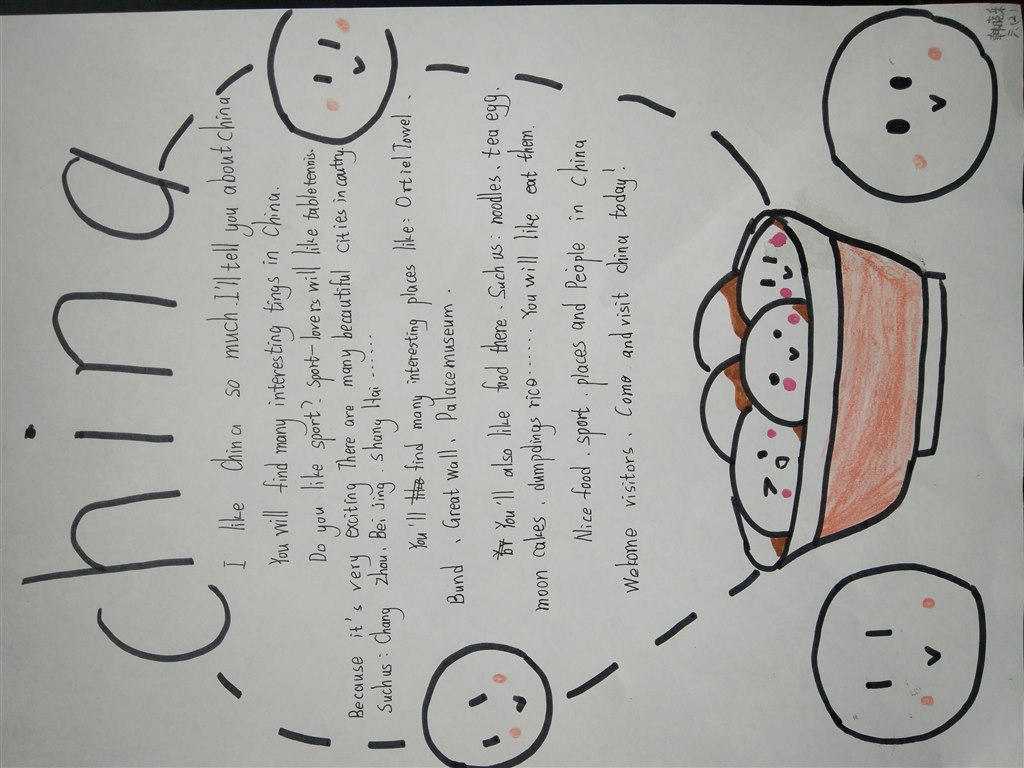 China
I like China so much. I'll tell you about China
You will find many interesting tings in China.
Do you like sport? Sport-lovers will like table tennis.
Because it's very exciting There are many beautiful cities in coutry.
Suchus: Chang zhou、Bei jing、shang Hai ......
You'll find many interesting places like: Ortiel Towel、
Bund、Great wall、Palace museum.
You'll also like food there. Such us: noodles、tea egg.
moon cakes、dumpdings rice...... You will like eat them.
Nice food、sport、places and People in China
Welcome visitors、Come and visit china today!
六(2)